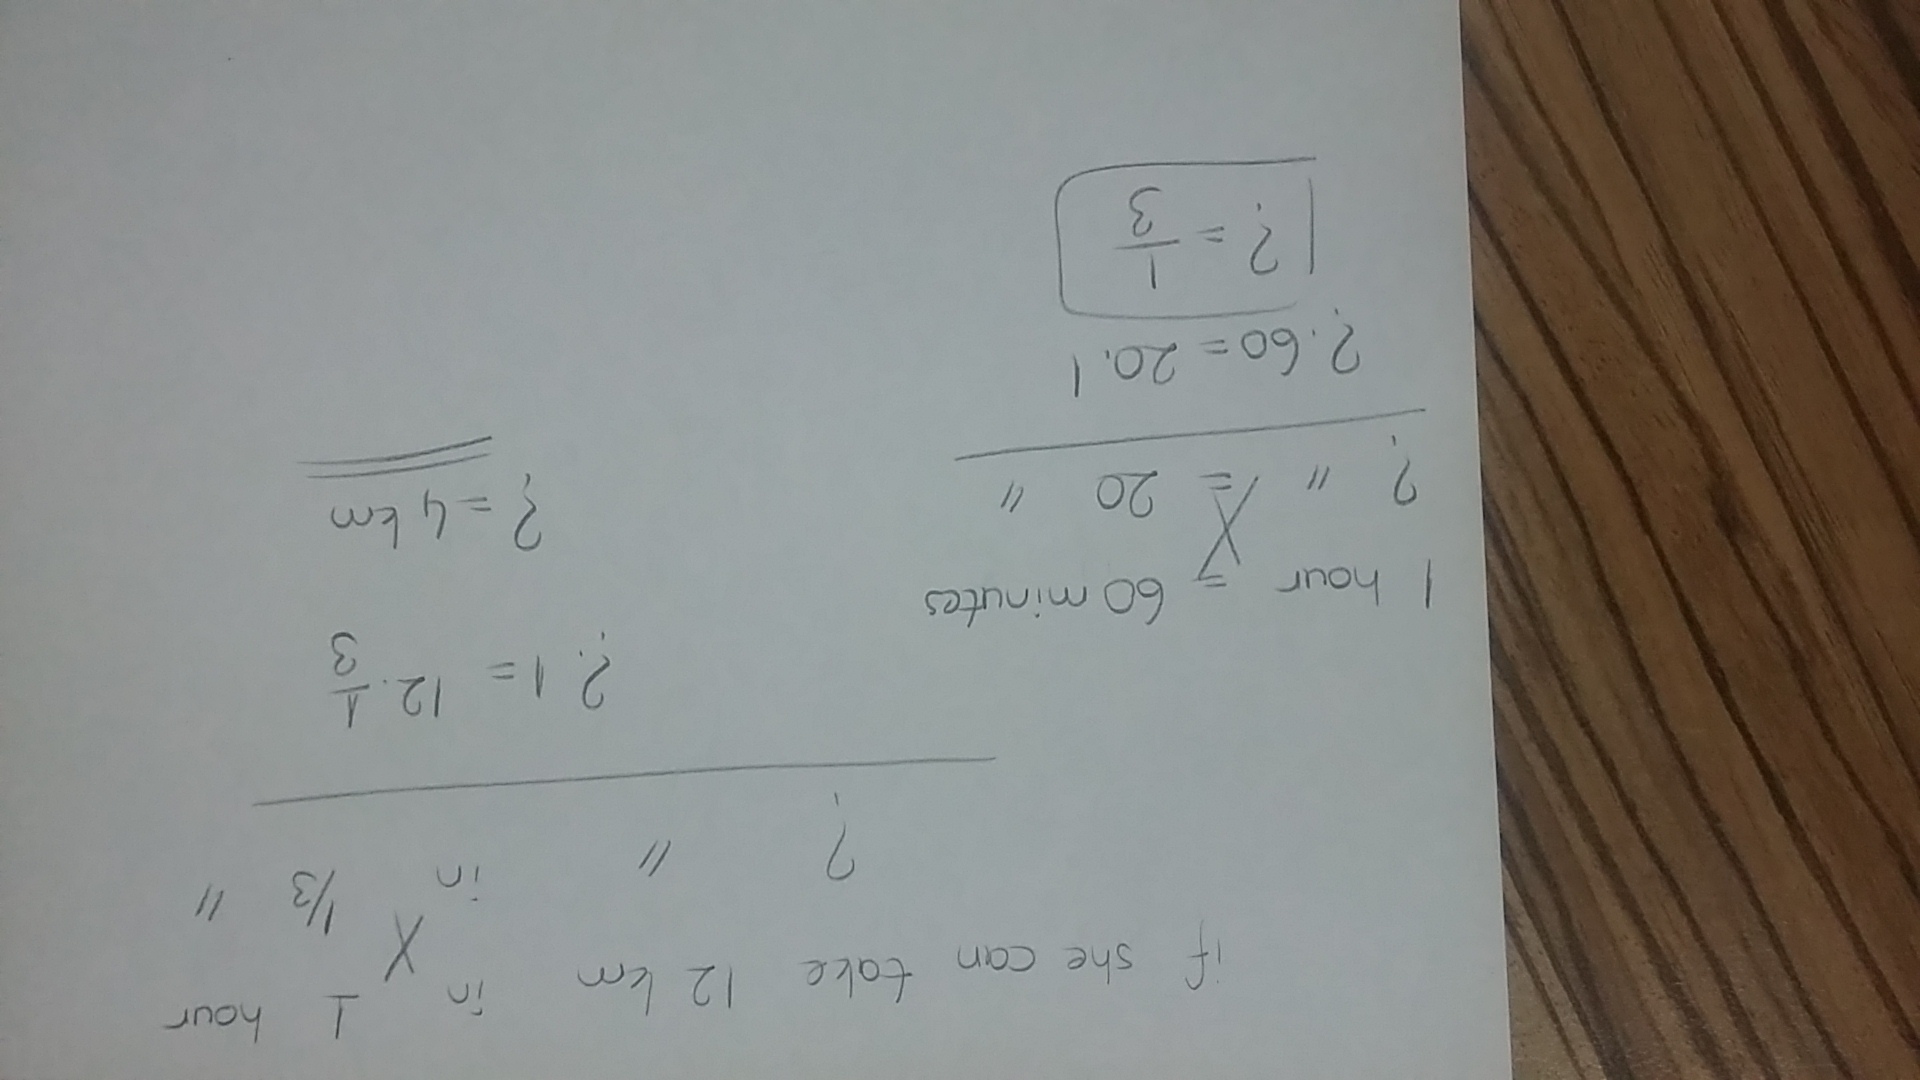 if she can take 12 km in 1 hour
? " in 1/3 "
?.1 = 12.1/3
? = 4 km
1 hour = 60 minutes
? " = 20 "
?.60 = 20.1
? = 1/3